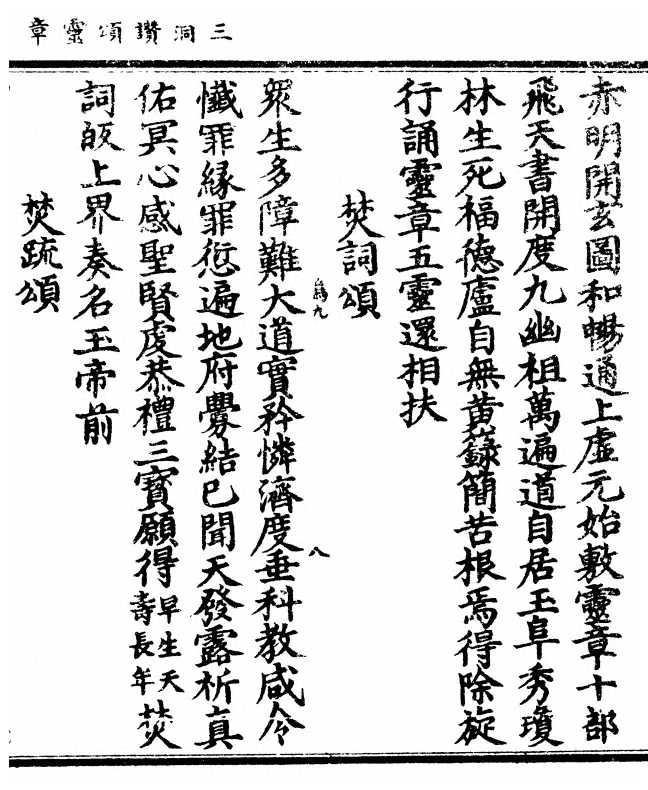 三洞讚頌靈章
赤明開玄圖和暢通上虛元始敷靈章十部
飛天書開度九幽祖萬遍道自居玉阜秀瓊
林生死福德廬自無黄籙簡苦根焉得除旋
行誦靈章五靈還相扶
焚詞頌
鳥九
八
衆生多障難大道實矜憐濟度垂科教咸令
懺罪緣罪愆遍地府釁結已聞天發露析真
佑冥心感聖賢虔恭禮三寳願得早生天壽長年焚
詞皈上界奏名玉帝前
焚疏頌